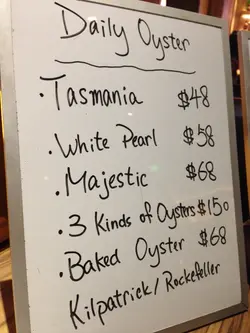 Daily Oyster
·Tasmania $48
·White Pearl $58
·Majestic $68
·3 Kinds of Oysters $150
·Baked Oyster $68
Kilpatrick/Rockefeller